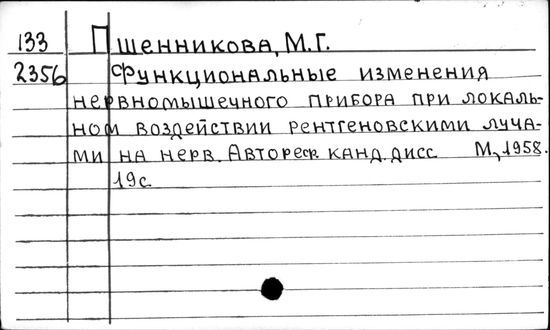 133 Пшенникова, М.Г.
2356 Функциональные изменения
нервномышечного прибора при локаль-
ном воздействии рентгеновскими луча-
ми на нерв. Автореф. канд. дисс. М., 1958.
19с.